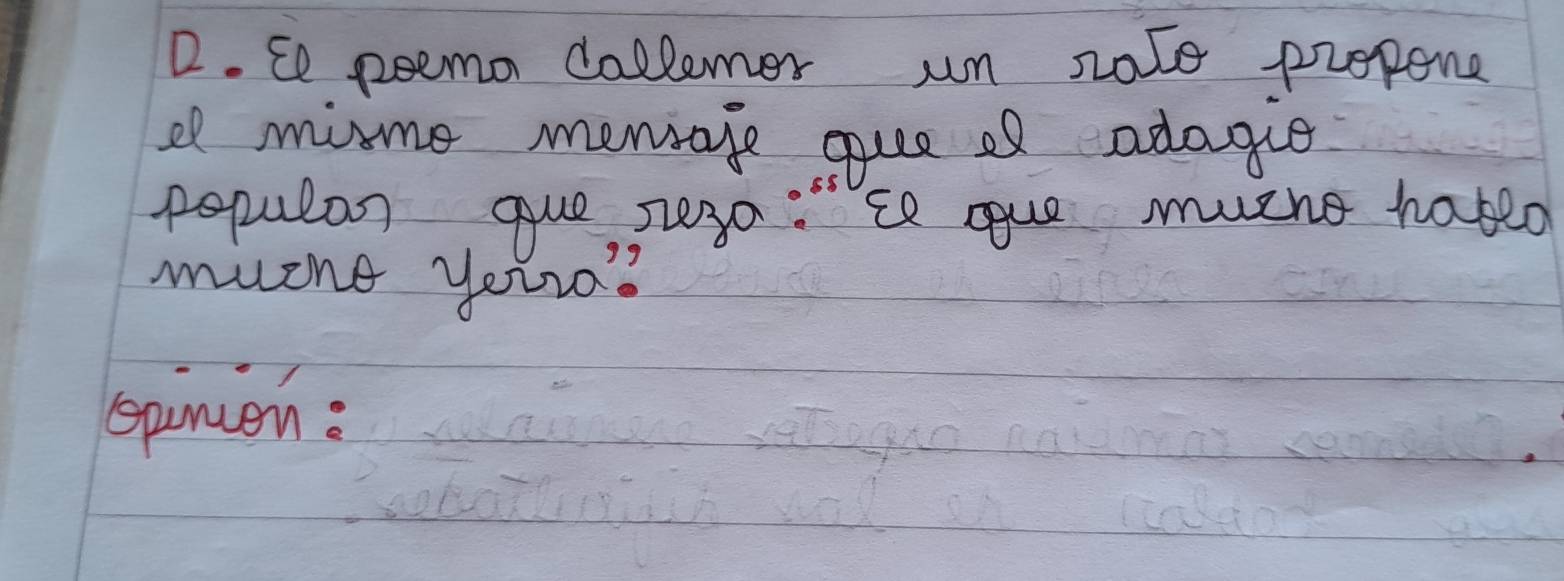 D. El poema Callemos un rato propone
el mismo mensaje que el adagio
popular que reza: "El que mucho habla
mucho yerra".
Opinión: